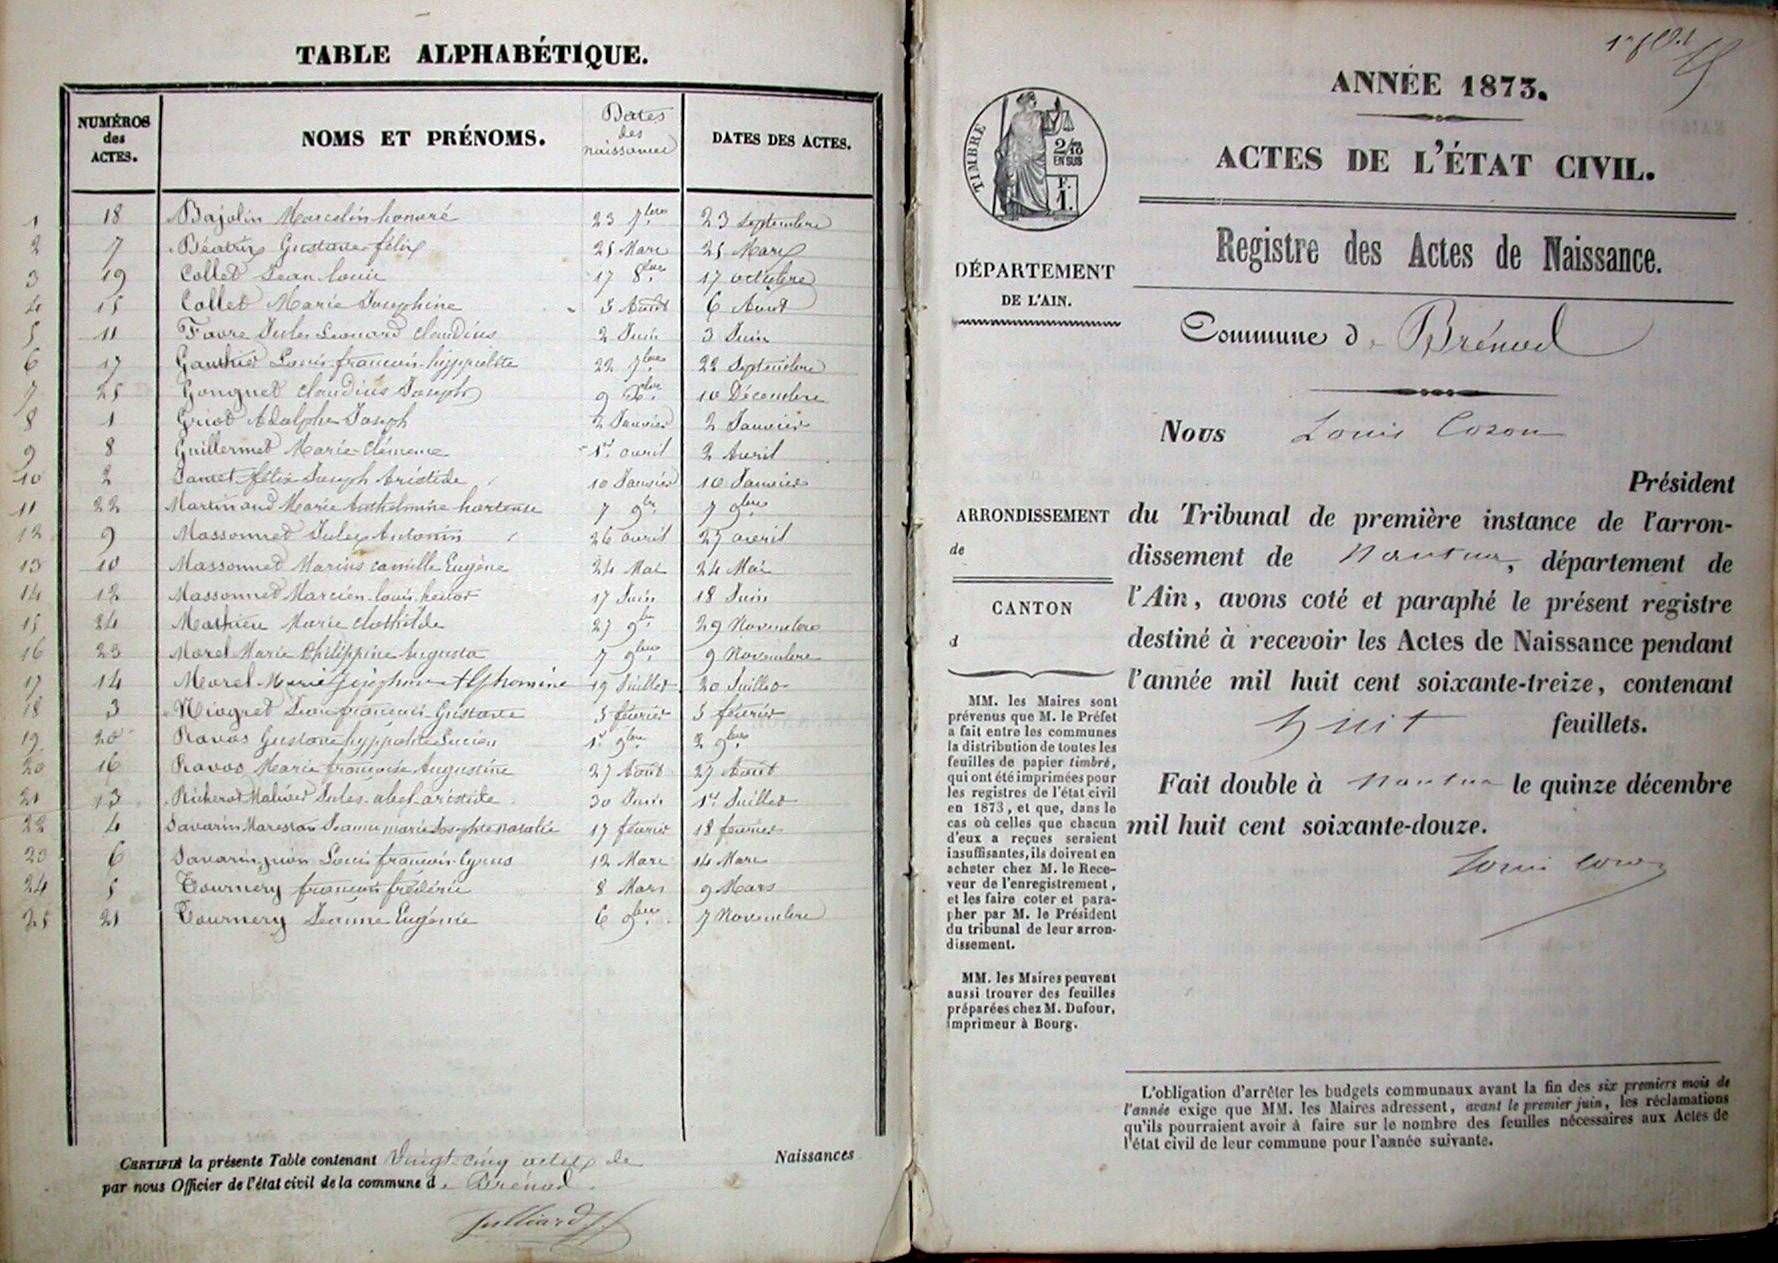 TABLE ALPHABÉTIQUE.
NUMÉROS des ACTES.
NOMS ET PRÉNOMS.
Dates des naissances
DATES DES ACTES.
1 18 Bajolin Marcelin honoré 23 7bre 23 Septembre
2 7 Béatrix Gustave félix 25 Mars 25 Mars
3 19 Collet Jean louis 17 8bre 17 octobre
4 15 Collet Marie Joséphine 5 Août 6 Août
5 11 Favre Jules Léonard Claudius 2 Juin 3 Juin
6 17 Gauthier Louis françois hippolite 22 7bre 22 Septembre
7 25 Gonguet Claudius Joseph 9 Xbre 10 Décembre
8 1 Griot Adolphe Joseph 2 Janvier 2 Janvier
9 8 Guillermet Marie Clémence 1er avril 2 Avril
10 2 Jantet félix Joseph Aristide 10 Janvier 10 Janvier
11 22 Martinand Marie Anthelmine hortense 7 9bre 7 9bre
12 9 Massonnet Jules Antonin 26 avril 27 avril
13 10 Massonnet Marius camille Eugène 24 Mai 24 Mai
14 12 Massonnet Marcien louis hector 17 Juin 18 Juin
15 24 Mathieu Marie Clothilde 27 9bre 29 Novembre
16 23 Morel Marie Philippine Augusta 7 9bre 9 Novembre
17 14 Morel Marie Joséphine Alphonsine 19 Juillet 20 Juillet
18 3 Niogret Jean françois Gustave 3 février 3 février
19 20 Ravot Gustave hyppolite Lucien 1er 9bre 2 9bre
20 16 Ravot Marie françoise Augustine 27 Août 27 Août
21 13 Richerot Jules abel aristide 30 Juin 1er Juillet
22 4 Savarin Marestan Jeanne marie Josephte natalie 17 février 18 février
23 6 Savarin Louis françois Cyrus 12 Mars 14 Mars
24 5 Tournery françois frédéric 8 Mars 9 Mars
25 21 Tournery Jeanne Eugénie 6 9bre 7 Novembre
CERTIFIÉ la présente Table contenant Vingt cinq actes de Naissances
par nous Officier de l'état civil de la commune de Brénod.
Julliard
ANNÉE 1873.
ACTES DE L'ÉTAT CIVIL.
TIMBRE
2/10
EN SUS
F.
1.
Registre des Actes de Naissance.
DÉPARTEMENT
DE L'AIN.
Commune de Brénod
Nous Louis Cozon
Président
ARRONDISSEMENT
de
CANTON
d
du Tribunal de première instance de l'arron-
dissement de Nantua, département de
l'Ain, avons coté et paraphé le présent registre
destiné à recevoir les Actes de Naissance pendant
l'année mil huit cent soixante-treize, contenant
huit feuillets.
Fait double à Nantua le quinze décembre
mil huit cent soixante-douze.
Louis Cozon
MM. les Maires sont
prévenus que M. le Préfet
a fait entre les communes
la distribution de toutes les
feuilles de papier timbré,
qui ont été imprimées pour
les registres de l'état civil
en 1873, et que, dans le
cas où celles que chacun
d'eux a reçues seraient
insuffisantes, ils doivent en
acheter chez M. le Rece-
veur de l'enregistrement,
et les faire coter et para-
pher par M. le Président
du tribunal de leur arron-
dissement.
MM. les Maires peuvent
aussi trouver des feuilles
préparées chez M. Dufour,
imprimeur à Bourg.
L'obligation d'arrêter les budgets communaux avant la fin des six premiers mois de
l'année exige que MM. les Maires adressent, avant le premier juin, les réclamations
qu'ils pourraient avoir à faire sur le nombre des feuilles nécessaires aux Actes de
l'état civil de leur commune pour l'année suivante.